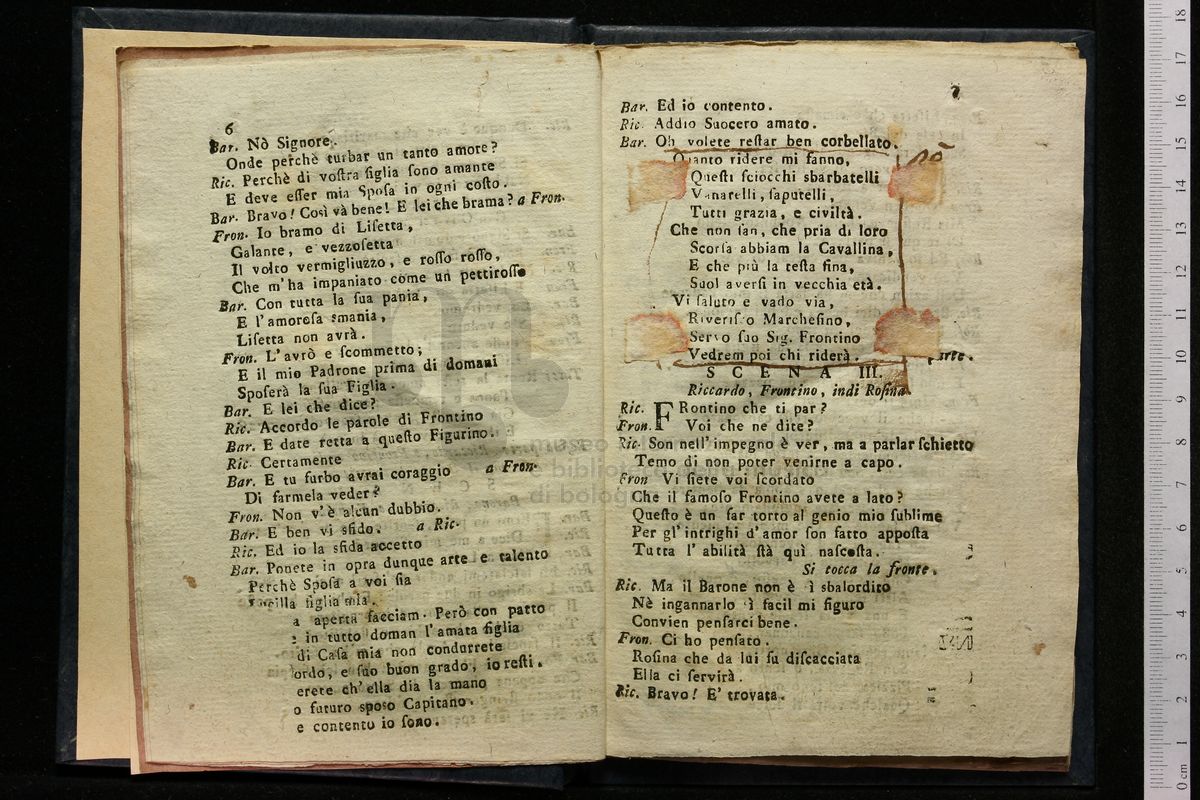 6
Bar. Nò Signore.
Onde perchè turbar un tanto amore?
Ric. Perchè di voſtra figlia ſono amante
E deve eſſer mia Spoſa in ogni coſto.
Bar. Bravo! Così và bene! E lei che brama? a Fron.
Fron. Io bramo di Liſetta,
Galante, e vezzoſetta
Il volto vermigliuzzo, e roſſo roſſo,
Che m'ha impaniato come un pettiroſſo
Bar. Con tutta la ſua pania,
E l'amoroſa smania,
Liſetta non avrà.
Fron. L'avrò e ſcommetto;
E il mio Padrone prima di domani
Spoſerà la ſua Figlia.
Bar. E lei che dice?
Ric. Accordo le parole di Frontino
Bar. E date retta a queſto Figurino.
Ric. Certamente
Bar. E tu furbo avrai coraggio a Fron.
Di farmela veder?
Fron. Non v'è alcun dubbio.
Bar. E ben vi sfido. a Ric.
Ric. Ed io la sfida accetto
Bar. Ponete in opra dunque arte e talento
Perchè Spoſa a voi ſia
figlia mia.
a aperta facciam. Però con patto
in tutto doman l'amata figlia
di Caſa mia non condurrete
ordo, e ſuo buon grado, io reſti.
erete ch'ella dia la mano
o futuro sposo Capitano.
e contento io ſono.
7
Bar. Ed io contento.
Ric. Addio Suocero amato.
Bar. Oh volete reſtar ben corbellato.
Quanto ridere mi fanno,
Queſti ſciocchi sbarbatelli
Vanarelli, ſaputelli,
Tutti grazia, e civiltà.
Che non ſan, che pria di loro
Scorſa abbiam la Cavallina,
E che più la teſta fina,
Suol averſi in vecchia età.
Vi ſaluto e vado via,
Riveriſco Marcheſino,
Servo ſuo Sig. Frontino
Vedrem poi chi riderà. parte.
SCENA III.
Riccardo, Frontino, indi Roſina.
Ric. FRontino che ti par?
Fron. Voi che ne dite?
Ric. Son nell'impegno è ver, ma a parlar ſchietto
Temo di non poter venirne a capo.
Fron Vi ſiete voi ſcordato
Che il famoſo Frontino avete a lato?
Queſto è un far torto al genio mio ſublime
Per gl'intrighi d'amor ſon fatto appoſta
Tutta l'abilità ſtà quì naſcoſta.
Si tocca la fronte.
Ric. Ma il Barone non è ì sbalordito
Nè ingannarlo ì facil mi figuro
Convien penſarci bene.
Fron. Ci ho penſato.
Roſina che da lui fu diſcacciata
Ella ci ſervirà.
Ric. Bravo! E' trovata.
museo
biblioteca
di bologna
0 cm 1 2 3 4 5 6 7 8 9 10 11 12 13 14 15 16 17 18